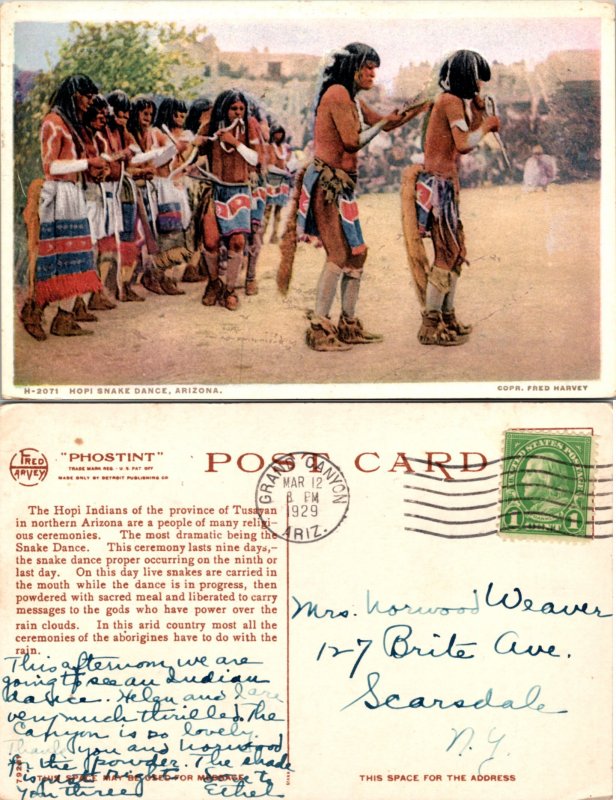 H-2071 HOPI SNAKE DANCE, ARIZONA.
COPR. FRED HARVEY
FRED HARVEY
"PHOSTINT"
TRADE MARK REG. - U.S. PAT OFF
MADE ONLY BY DETROIT PUBLISHING CO.
POST CARD
GRAND CANYON
MAR 12
8 PM
1929
ARIZ.
UNITED STATES POSTAGE
1 1
The Hopi Indians of the province of Tusayan
in northern Arizona are a people of many religi-
ous ceremonies. The most dramatic being the
Snake Dance. This ceremony lasts nine days,-
the snake dance proper occurring on the ninth or
last day. On this day live snakes are carried in
the mouth while the dance is in progress, then
powdered with sacred meal and liberated to carry
messages to the gods who have power over the
rain clouds. In this arid country most all the
ceremonies of the aborigines have to do with the
rain.
This afternoon we are
going to see an Indian
dance. Helen and I are
very much thrilled. The
Canyon is so lovely.
Thank you and Norwood
for the powder. The shade
is just right. Love to
you three Ethel
THIS SPACE MAY BE USED FOR MESSAGE
Mrs. Norwood Weaver
127 Brite Ave.
Scarsdale
N.Y.
THIS SPACE FOR THE ADDRESS